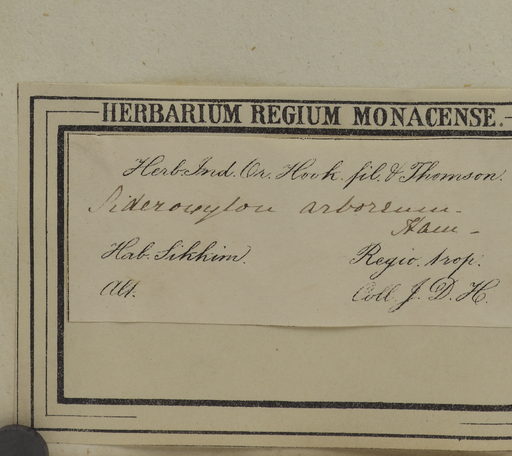 HERBARIUM REGIUM MONACENSE.
Herb. Ind. Or. Hook. fil. & Thomson.
Sideroxylon arboreum
Ham
Hab. Sikkim. Regio. trop.
Alt. Coll. J. D. H.